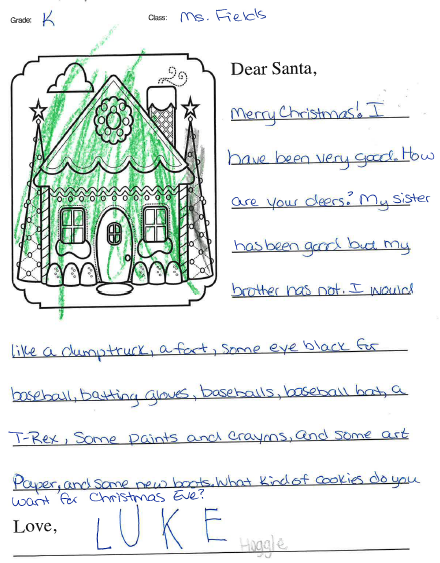 Grade: K Class: Ms. Fields
Dear Santa,
Merry Christmas! I
have been very good. How
are your deers? My sister
has been good but my
brother has not. I would
like a dumptruck, a fort, some eye black for
baseball, batting gloves, baseballs, baseball bat, a
T-Rex, some paints and crayons, and some art
Paper, and some new boots. What kind of cookies do you
want for Christmas Eve?
Love, LUKE Hoggle